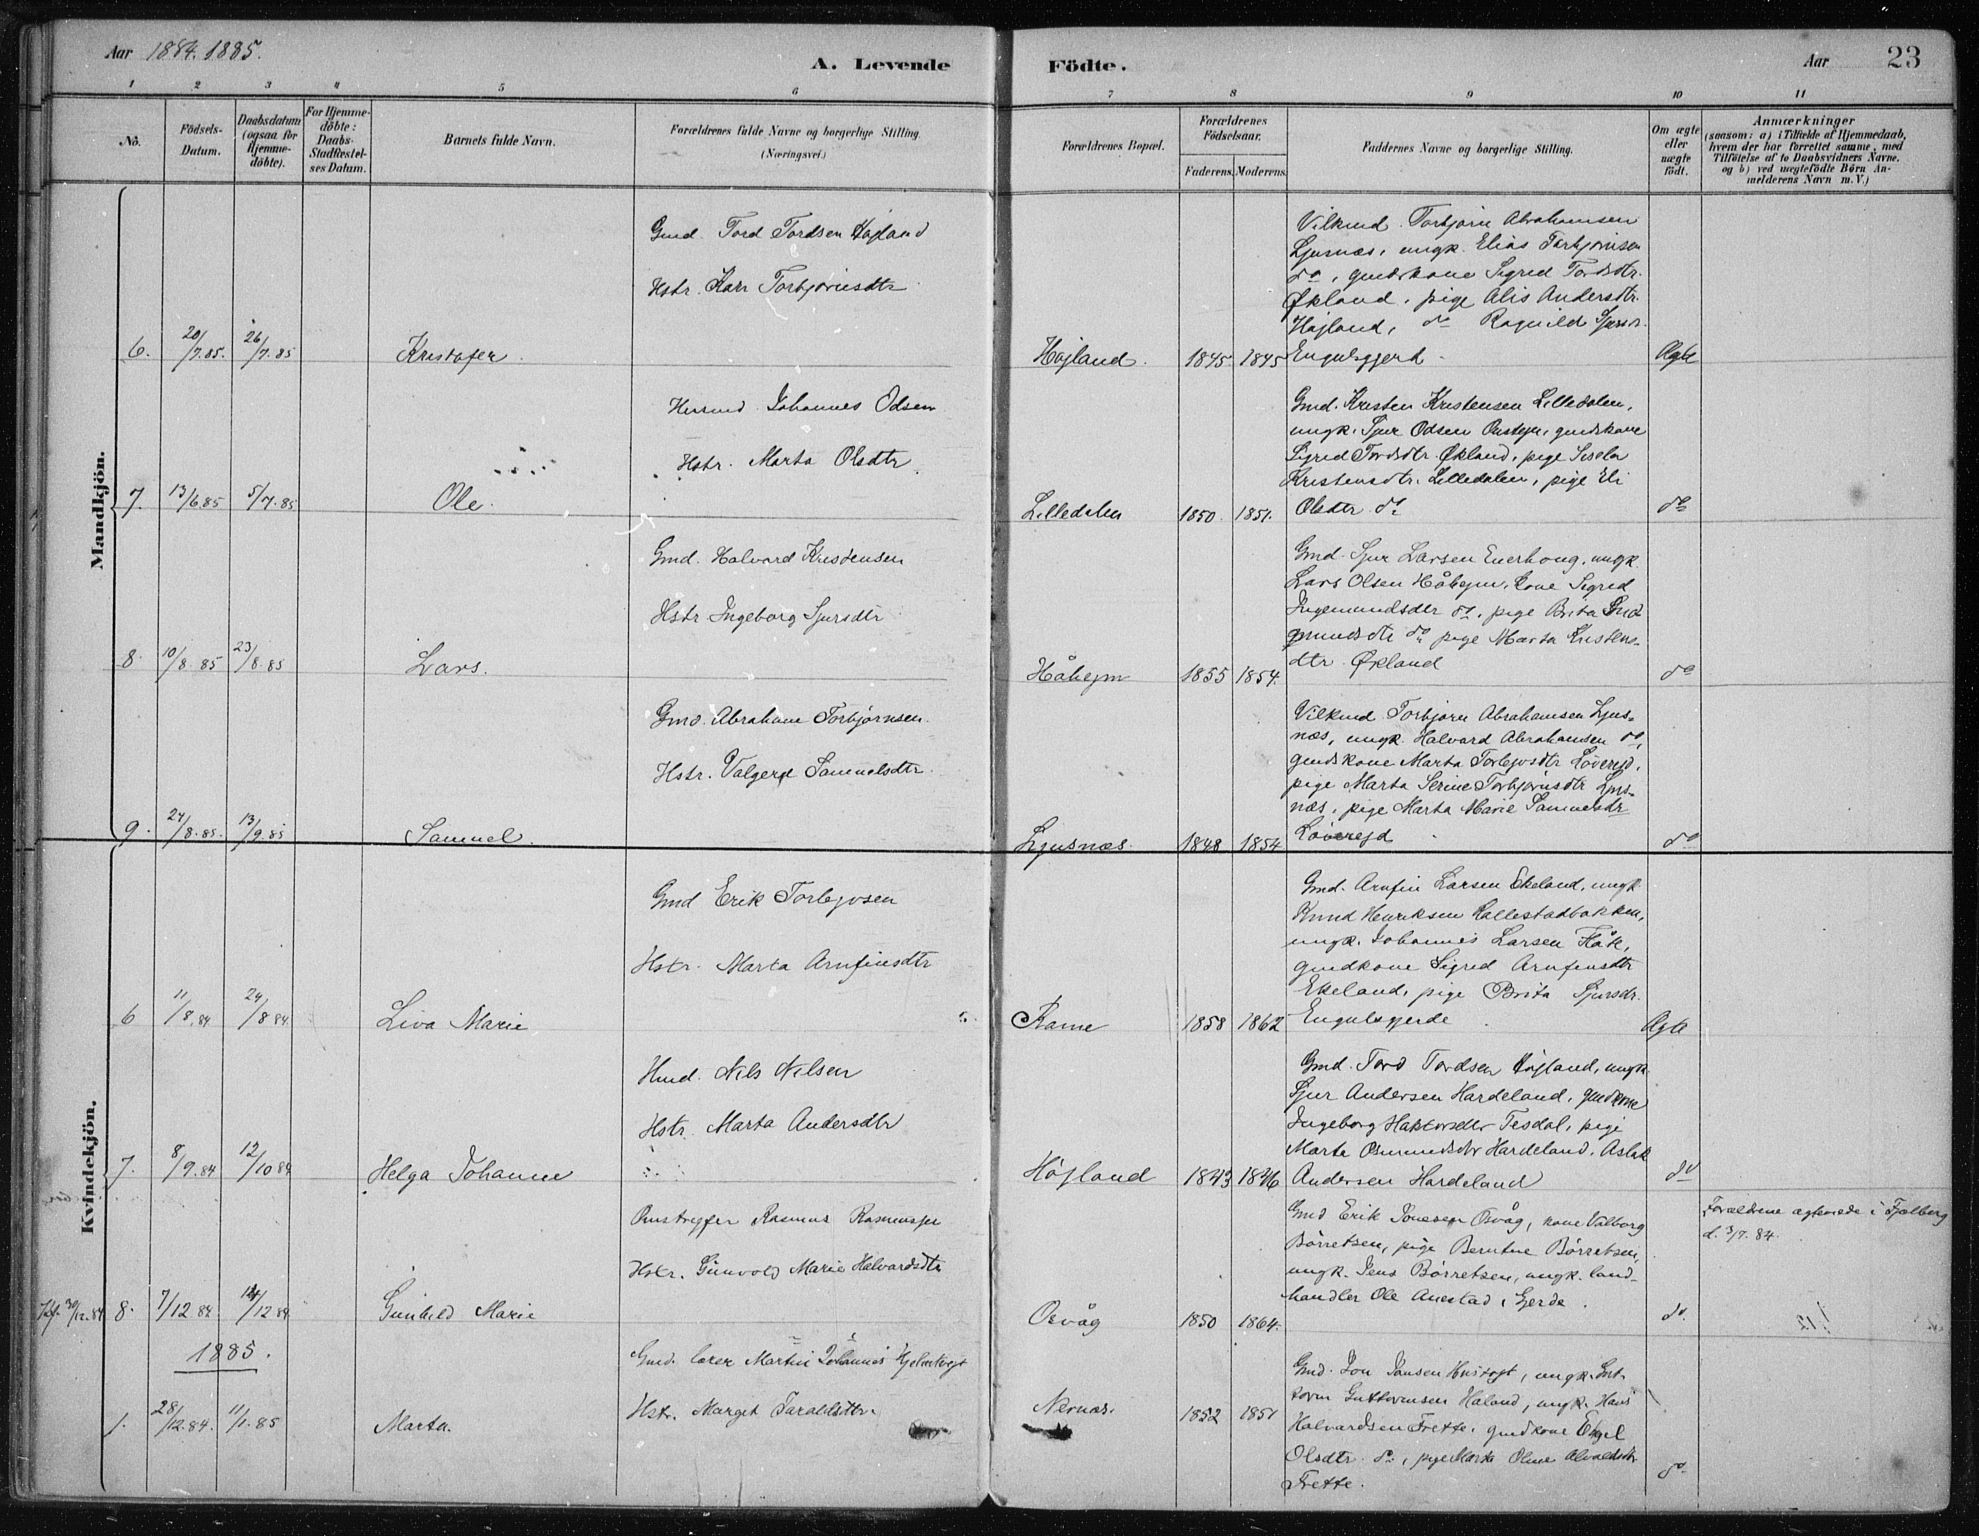 Aar 1884.1885.
A. Levende Födte.
Aar 23
1 2 3 4 5 6 7 8 9 10 11
No.
Födsels-Datum.
Daabsdatum (ogsaa for Hjemme-döbte).
For Hjemme-döbte: Daabs-Stadfæstel-ses Datum.
Barnets fulde Navn.
Forældrenes fulde Navne og borgerlige Stilling.
(Næringsvei.)
Forældrenes Bopæl.
Forældrenes Födselsaar.
Faderens. Moderens.
Faddernes Navne og borgerlige Stilling.
Om ægte eller uægte födt.
Anmærkninger
(saasom: a) i Tilfælde af Hjemmedaab,
hvem der har forrettet samme, med
Tilföielse af to Daabsvidners Navne.
og b) ved uægtefödte Børn An-
melderens Navn m. V.)
Mandkjön.
Gmd. Tord Tordsen Højland
Hstr. Kari Torbjørnsdtr
6. 20/7.85. 26/7.85 Kristofer Højland. 1845 1845 Ægte
Vilkmd Torbjørn Abrahamsen
Ljusnæs, ungk. Elias Torbjørnsen
do, gmdskone Sigred Tordsdtr.
Økland, pige Alis Andersdtr.
Højland, do Ragnild Sjursdr.
Engulsgjerd
Husmd Johannes Odsen
Hstr. Marta Olsdtr
7. 13/6.85 5/7.85 Ole. Lilledalen 1850. 1851. do
Gmd. Kristen Kristensen Lilledalen,
ungk. Sjur Odsen, gmdskone
Sigred Tordsdtr. Økland, pige Sisela
Kristensdtr. Lilledalen, pige Eli
Olsdtr do
Gmd. Halvard Kristensen
Hstr Ingeborg Sjursdtr
8. 10/8.85 23/8.85 Lars. Håhejm 1855 1854. do
Gmd. Sjur Larsen Enerhoug, ungk.
Lars Olsen Håhejm, kone Sigred
Ingemundsdtr do, pige Brita
gmundsdtr do pige Marta Kristens-
dtr. Økland
Gmd. Abraham Torbjørnsen.
Hstr. Valgerd Samuelsdtr.
9. 24/8.85. 13/9.85 Samuel. Ljusnæs. 1848 1854 do
Vilkmd Torbjørn Abrahamsen Ljus-
næs, ungk. Halvard Abrahamsen do,
gmdskone Marta Torbejvsdtr Løverejd,
pige Marta Serine Torbjørnsdtr Ljus-
næs, pige Marta Marie Samuelsdr
Løverejd
Kvindekjön.
Gmd Erik Torbejvsen
Hstr. Marta Arnfinsdtr
6 11/8.84 24/8 84 Liva Marie Rame 1858 1862 Ægte
Gmd. Arnfin Larsen Ekeland, ungk
Knud Henriksen Hallestadbakken,
ungk. Johannes Larsen Flåte,
gmdkone Sigred Arnfinsdtr
Ekeland, pige Brita Sjursdr.
Engulsgjerde
Hmd. Nils Nilsen
Hstr. Marta Andersdtr
7. 8/9.84 12/10 84 Helga Johanne Højland 1843 1846 do
Gmd. Tord Tordsen Højland, ungk.
Sjur Andersen Hardeland, gmdkone
Ingeborg Haktorsdtr Tesdal, pige
Marta Osmundsdtr Hardeland, Aslak
Andersen Hardeland
Rasmus
Hstr. Gunvold Marie Halvardsdtr
30/12.84 8. 7/12 84 14/12 84 Gunhild Marie Osvåg 1850 1864. do.
Gmd Erik Jonesen Osvåg, kone Valborg
Børretsen, pige Berntine Børretsen,
ungk. Jens Børretsen, ungk. land-
handler Ole Anestad i Gjerde.
Forældrene ægteviede i Fjelberg
d. 3/7.84.
1885.
Gmd. lærer Martin Johannes
Hstr. Marget Taraldsdtr.
1. 28/12.84. 11/1.85 Marta. Nernæs. 1852 1851 do
Gmd. Jon Jonsen Hustoft, ungk. Gut-
torm Guttormsen Håland, ungk. Hans
Halvardsen Frette, gmdkone Engel
Olsdtr. do, pige Marta Oline
Frette.